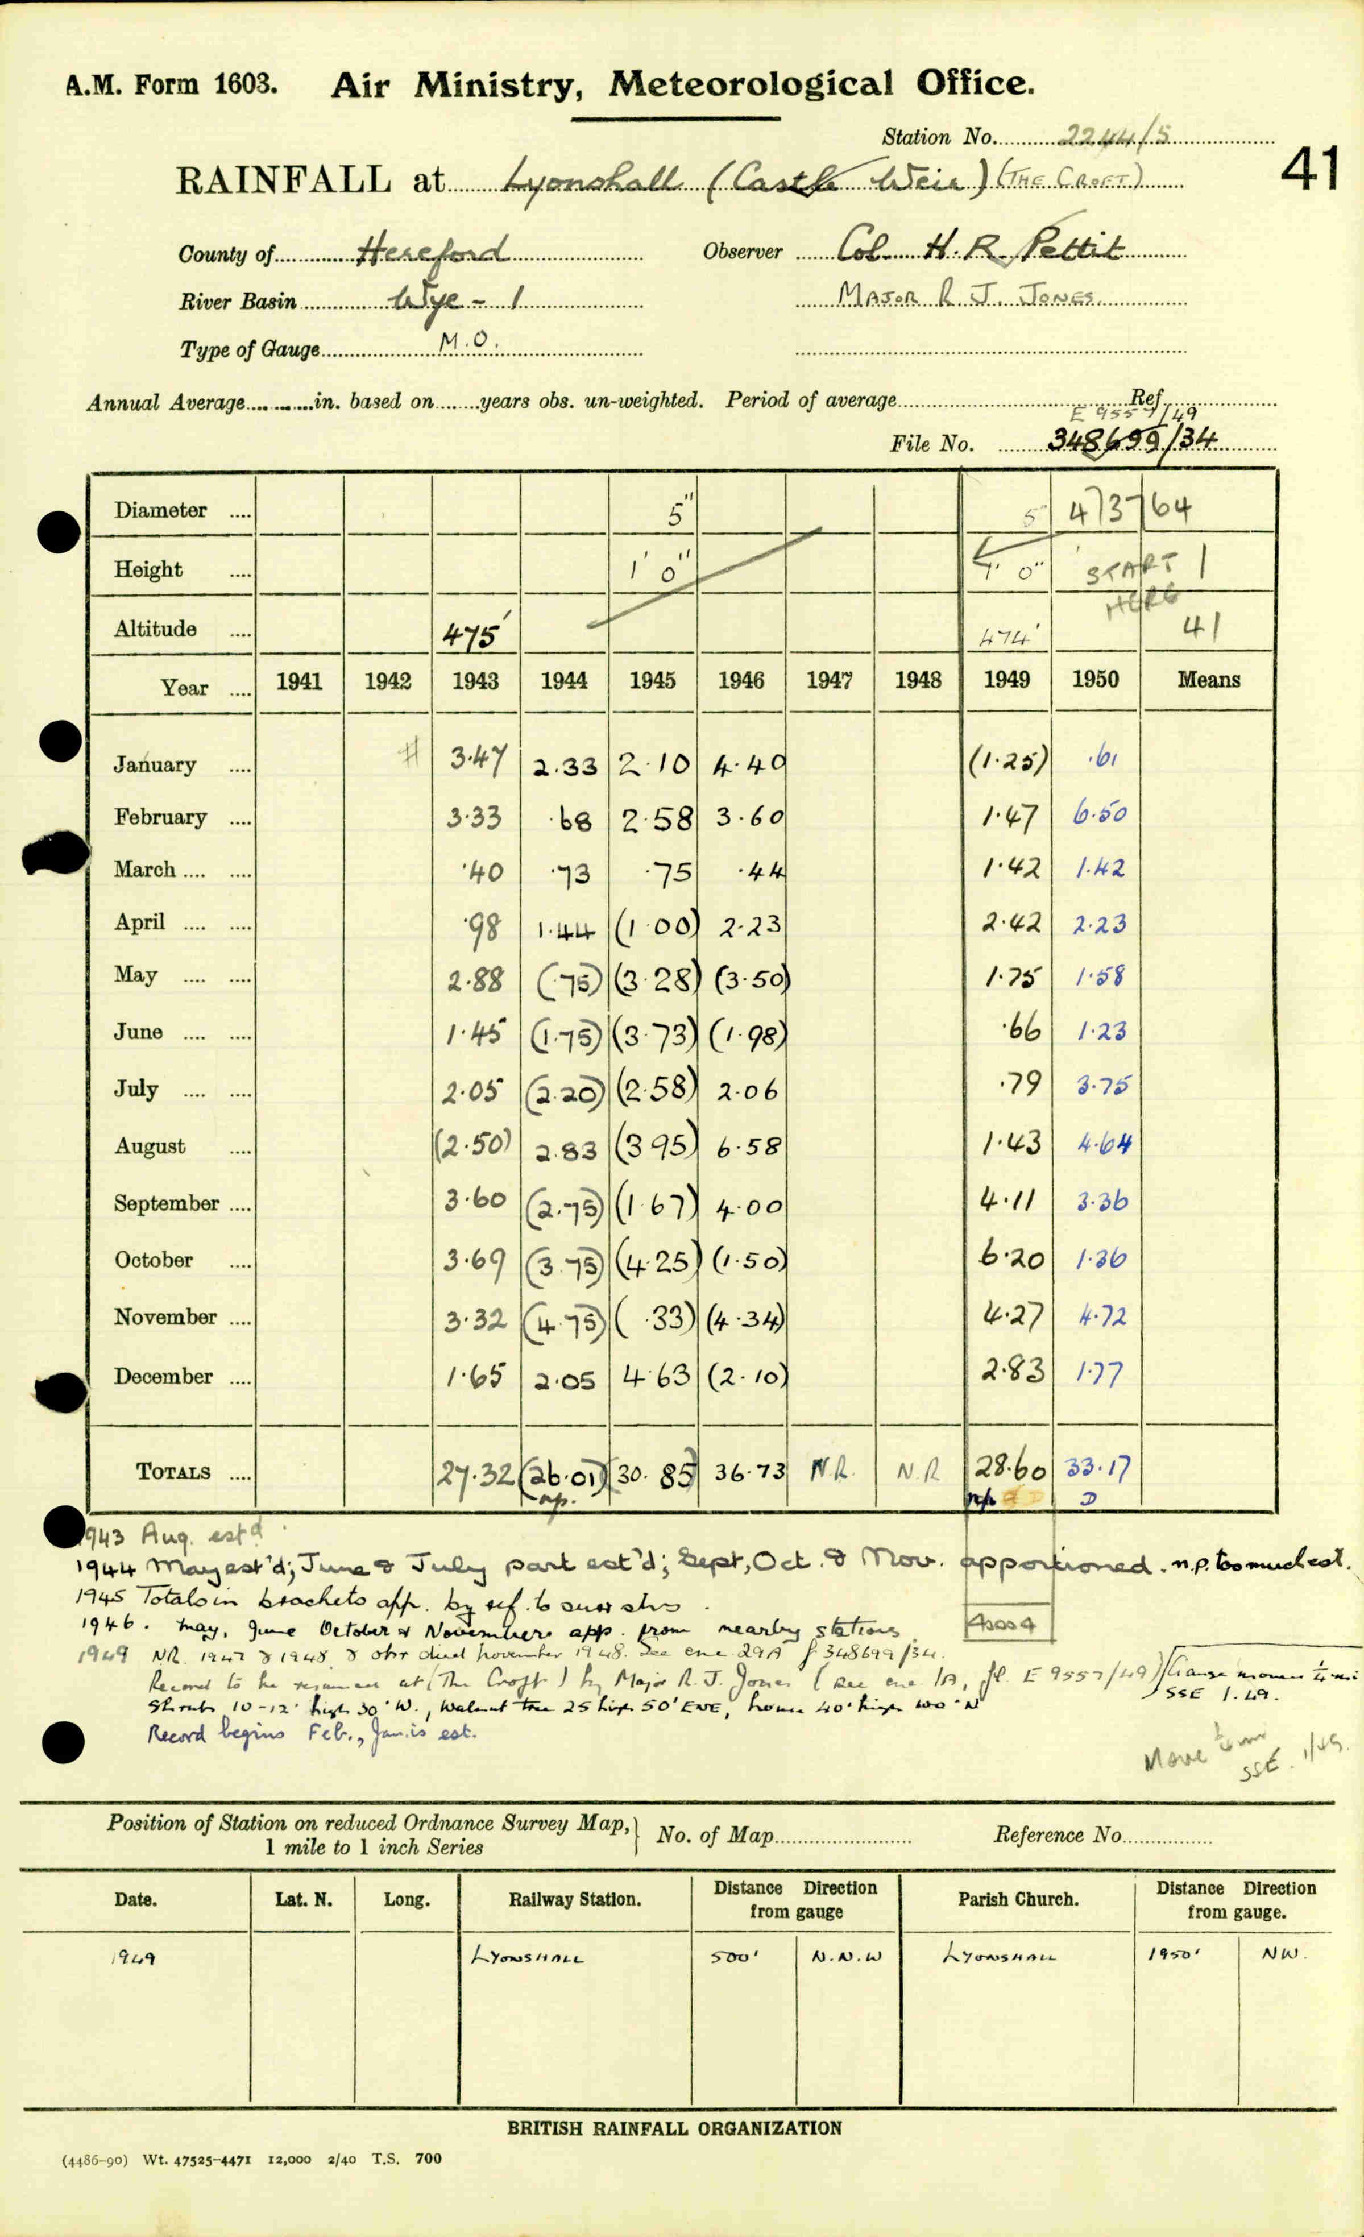 A.M. Form 1603. Air Ministry, Meteorological Office.
Station No. 2244/5
41
RAINFALL at Lyonshall (Castle Weir) (THE CROFT)
County of Hereford Observer Col. H. R. Pettit
River Basin Wye - 1 MAJOR R. J. JONES.
Type of Gauge M.O.
Annual Average in. based on years obs. un-weighted. Period of average Ref.
E 9557/49
File No. 348699/34
Diameter .... 5" 5 473764
Height .... 1' 0" 1' 0" START HERE 1
Altitude .... 475' 474' 41
Year .... 1941 1942 1943 1944 1945 1946 1947 1948 1949 1950 Means
January .... # 3.47 2.33 2.10 4.40 (1.25) .61
February .... 3.33 .68 2.58 3.60 1.47 6.50
March .... .... .40 .73 .75 .44 1.42 1.42
April .... .... .98 1.44 (1.00) 2.23 2.42 2.23
May .... .... 2.88 (.75) (3.28) (3.50) 1.75 1.58
June .... .... 1.45 (1.75) (3.73) (1.98) .66 1.23
July .... .... 2.05 (2.20) (2.58) 2.06 .79 3.75
August .... (2.50) 2.83 (3.95) 6.58 1.43 4.64
September .... 3.60 (2.75) (1.67) 4.00 4.11 3.36
October .... 3.69 (3.75) (4.25) (1.50) 6.20 1.36
November .... 3.32 (4.75) (.33) (4.34) 4.27 4.72
December .... 1.65 2.05 4.63 (2.10) 2.83 1.77
TOTALS .... 27.32 (26.01) (30.85) 36.73 N.R. N.R 28.60 33.17
n.p. n/p D
1943 Aug. est'd.
1944 May est'd; June & July part est'd; Sept, Oct. & Nov. apportioned. n.p. too much est.
1945 Totals in brackets app. by ref. to surr stns.
1946. May, June October & Novembers app. from nearby stations.
1949 NR 1947 & 1948, & obsr died November 1948. See enc 29A f 348699/34.
Record to be resumed at (The Croft) by Major R. J. Jones (see enc 1A, fl. E 9557/49) Gauge moved ¼ mi
SSE 1.49.
Shrubs 10-12' high 30' W., Walnut tree 25 high 50' ENE, house 40' high 100' N
Record begins Feb., Jan. is est.
Move ¼ mi
SSE 1/49.
Position of Station on reduced Ordnance Survey Map, 1 mile to 1 inch Series No. of Map Reference No.
Date. Lat. N. Long. Railway Station. Distance from gauge Direction Parish Church. Distance from gauge. Direction
1949 LYONSHALL 500' N.N.W LYONSHALL 1950' NW.
BRITISH RAINFALL ORGANIZATION
(4486-90) Wt. 47525-4471 12,000 2/40 T.S. 700